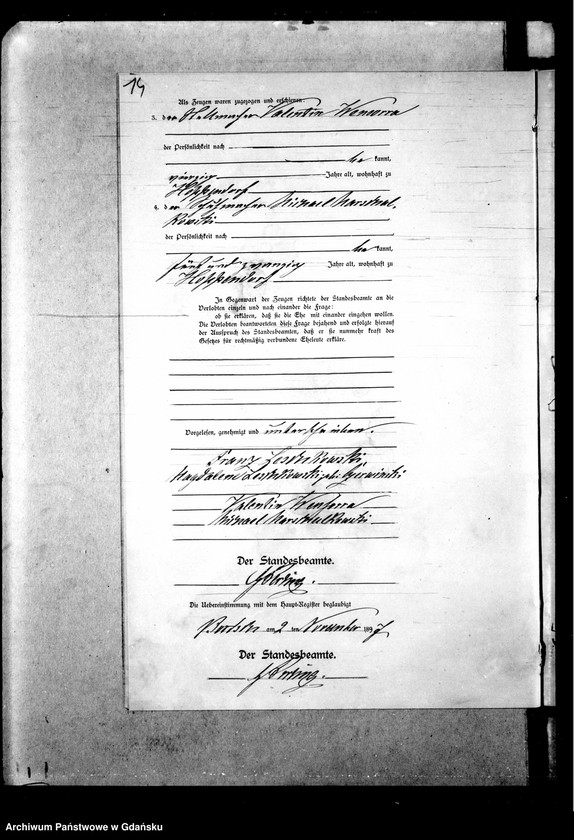 14
Als Zeugen waren zugezogen und erschienen:
3. der Stellmacher Valentin Wensorra
der Persönlichkeit nach
be kannt,
vierzig Jahre alt, wohnhaft zu
Hoppendorf
4. der Schuhmacher Michael Marschal-
kowski
der Persönlichkeit nach
be kannt,
fünf und zwanzig Jahre alt, wohnhaft zu
Hoppendorf
In Gegenwart der Zeugen richtete der Standesbeamte an die
Verlobten einzeln und nach einander die Frage:
ob sie erklären, daß sie die Ehe mit einander eingehen wollen.
Die Verlobten beantworteten diese Frage bejahend und erfolgte hierauf
der Ausspruch des Standesbeamten, daß er sie nunmehr kraft des
Gesetzes für rechtmäßig verbundene Eheleute erkläre.
Vorgelesen, genehmigt und unterschrieben.
Franz
Magdalena geb.
Valentin Wensorra
Michael Marschalkowski
Der Standesbeamte.
Die Uebereinstimmung mit dem Haupt-Register beglaubigt
am 2 ten November 1897
Der Standesbeamte.
Archiwum Państwowe w Gdańsku